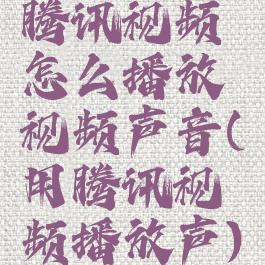 腾讯视频
怎么播放
视频声音(
用腾讯视
频播放声)